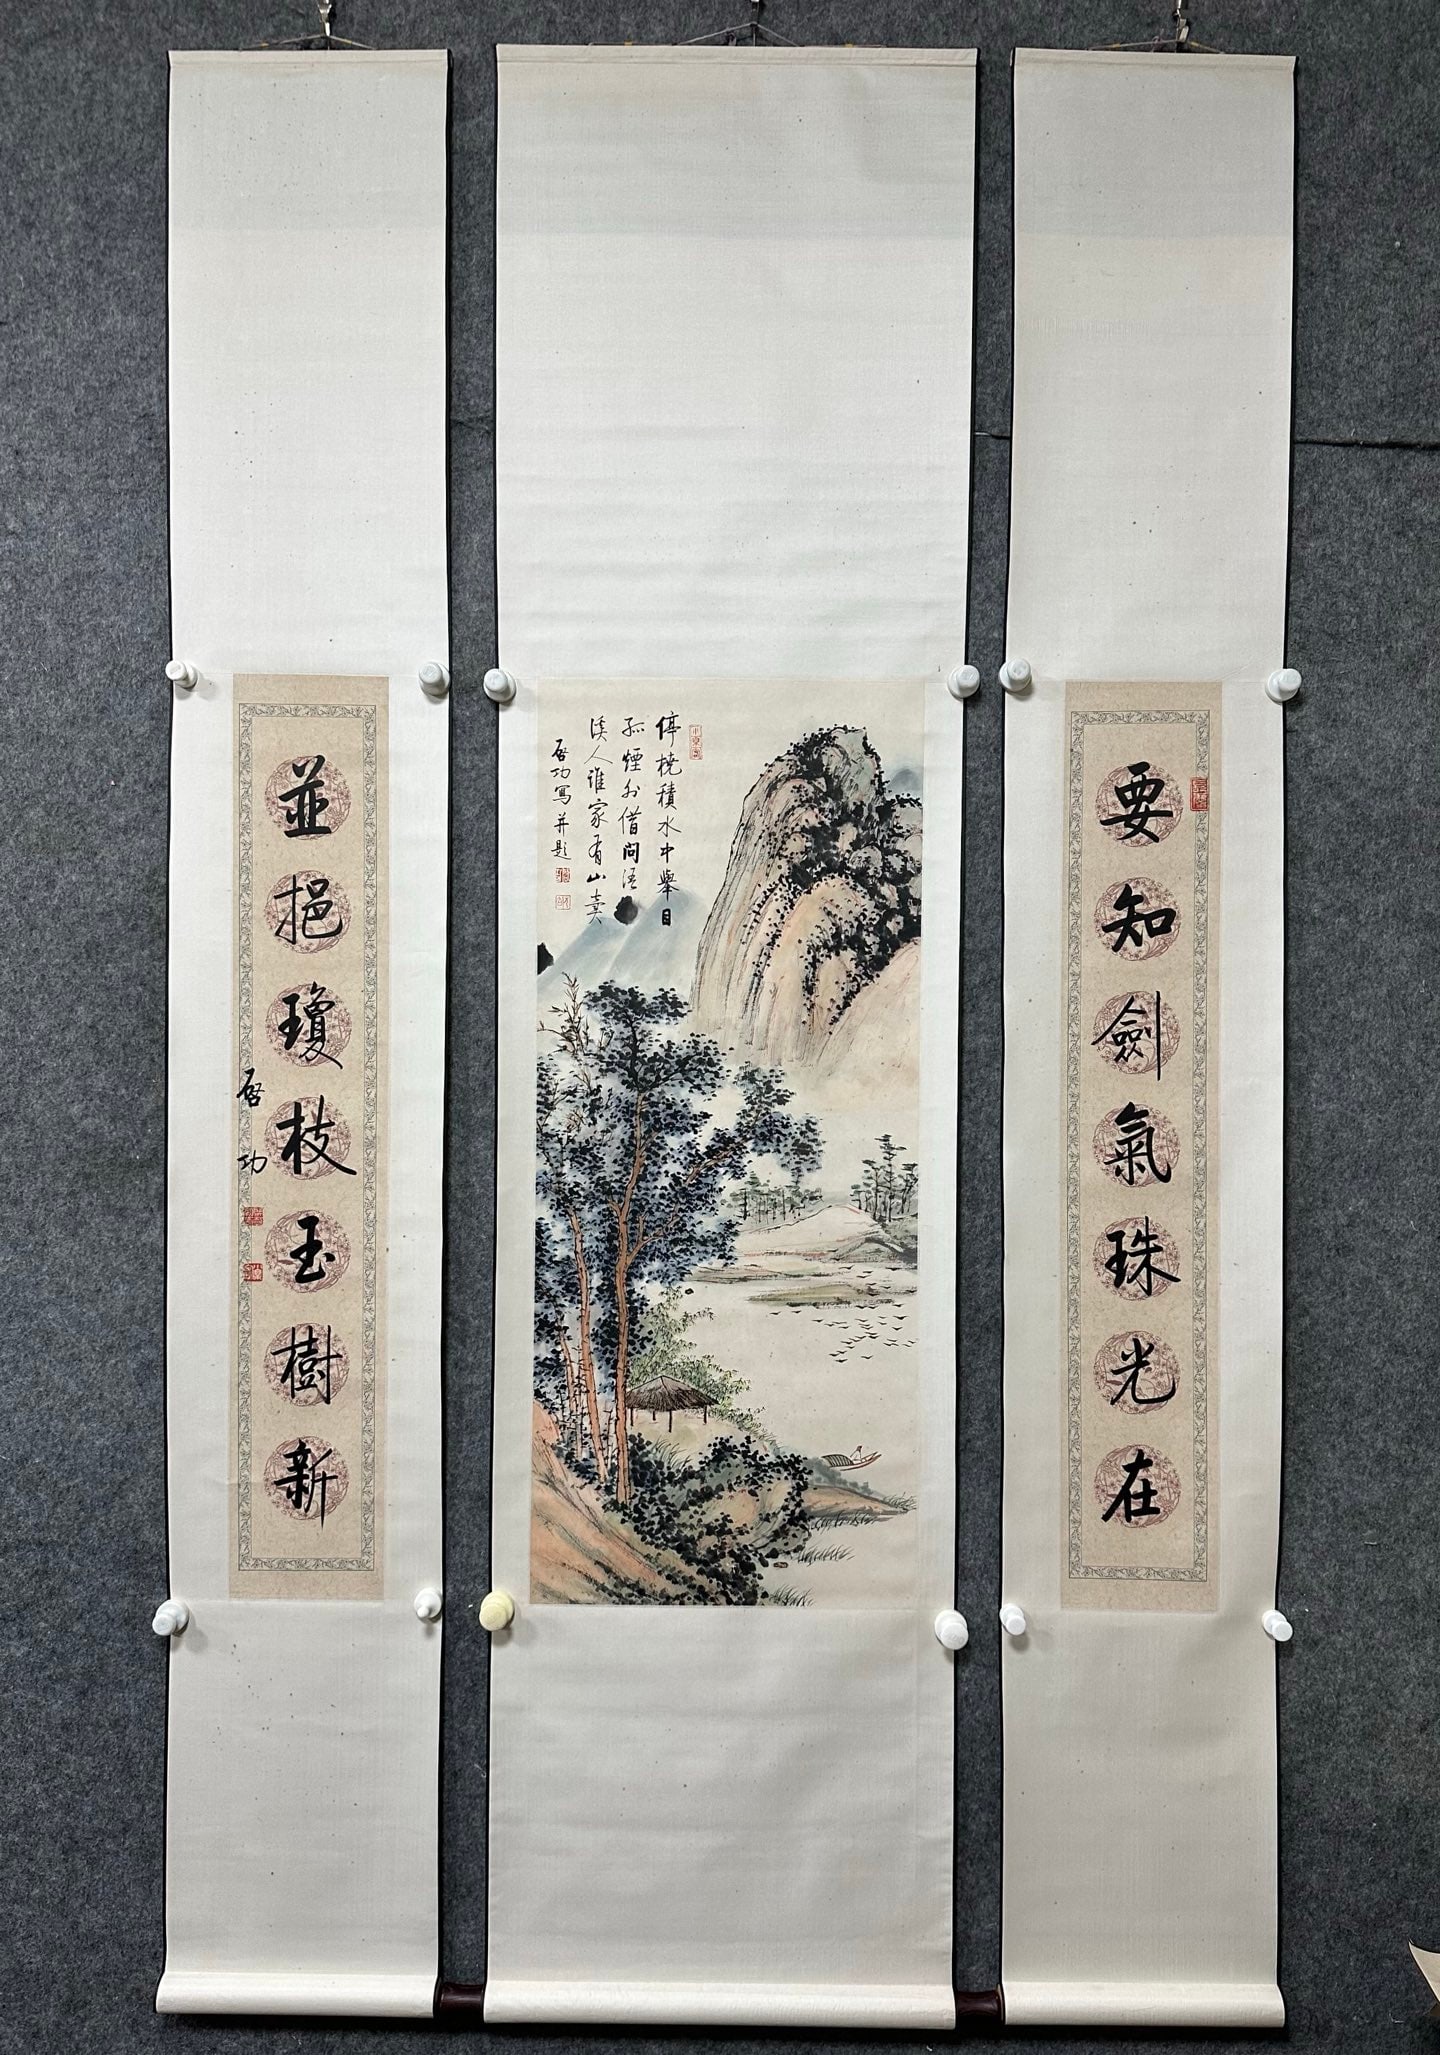 要知劍氣珠光在
停橈積水中舉目
孤煙外借問
溪人誰家有山賣
啓功寫并題
並挹瓊枝玉樹新
啓功